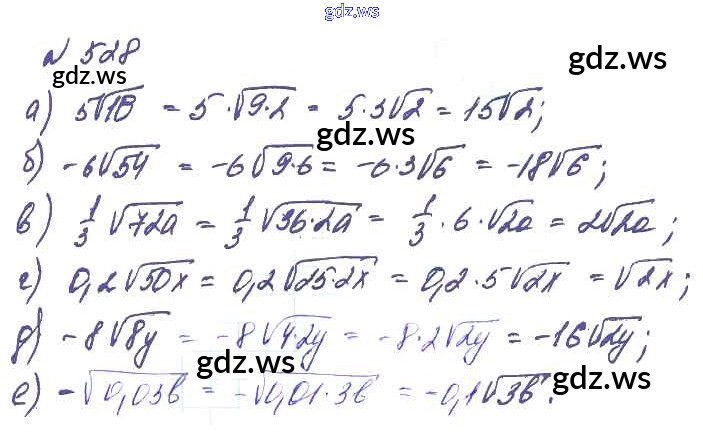 gdz.ws
N 528
gdz.ws
gdz.ws
а) 5√18 = 5·√9·2 = 5·3√2 = 15√2;
gdz.ws
б) -6√54 = -6√9·6 = -6·3√6 = -18√6;
в) 1/3 √72a = 1/3 √36·2a = 1/3·6·√2a = 2√2a;
г) 0,2√50x = 0,2√25·2x = 0,2·5√2x = √2x;
д) -8√8y = -8√4·2y = -8·2√2y = -16√2y;
gdz.ws
gdz.ws
е) -√0,03b = -√0,01·3b = -0,1√3b.